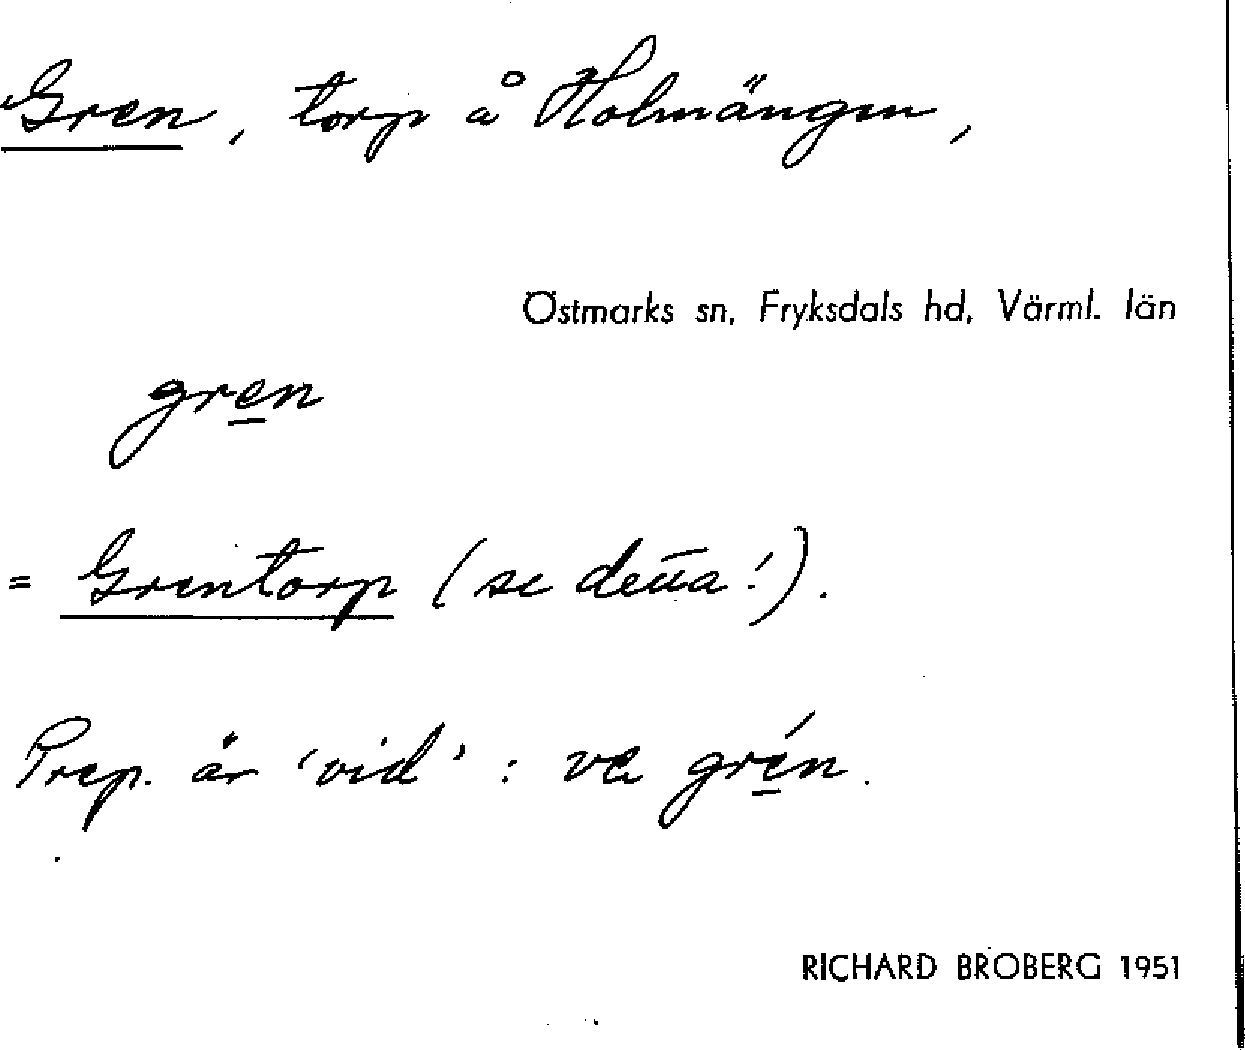 Gren, torp å Holmängen,
Östmarks sn, Fryksdals hd, Värml. län
gren
= Grentorp (se detta!).
Prep. är 'vid' : va grén.
RICHARD BROBERG 1951